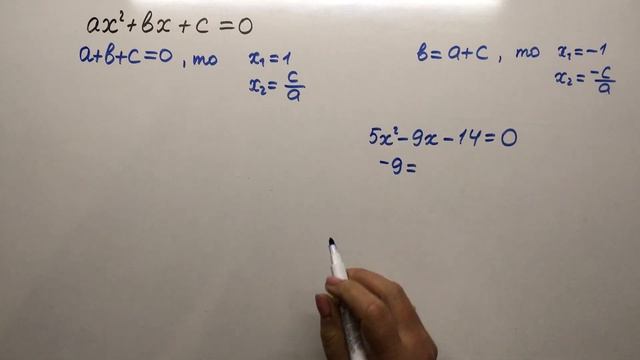 ax²+bx+c=0
a+b+c=0, то x₁=1
x₂=c/a
b=a+c, то x₁=-1
x₂=-c/a
5x²-9x-14=0
-9=